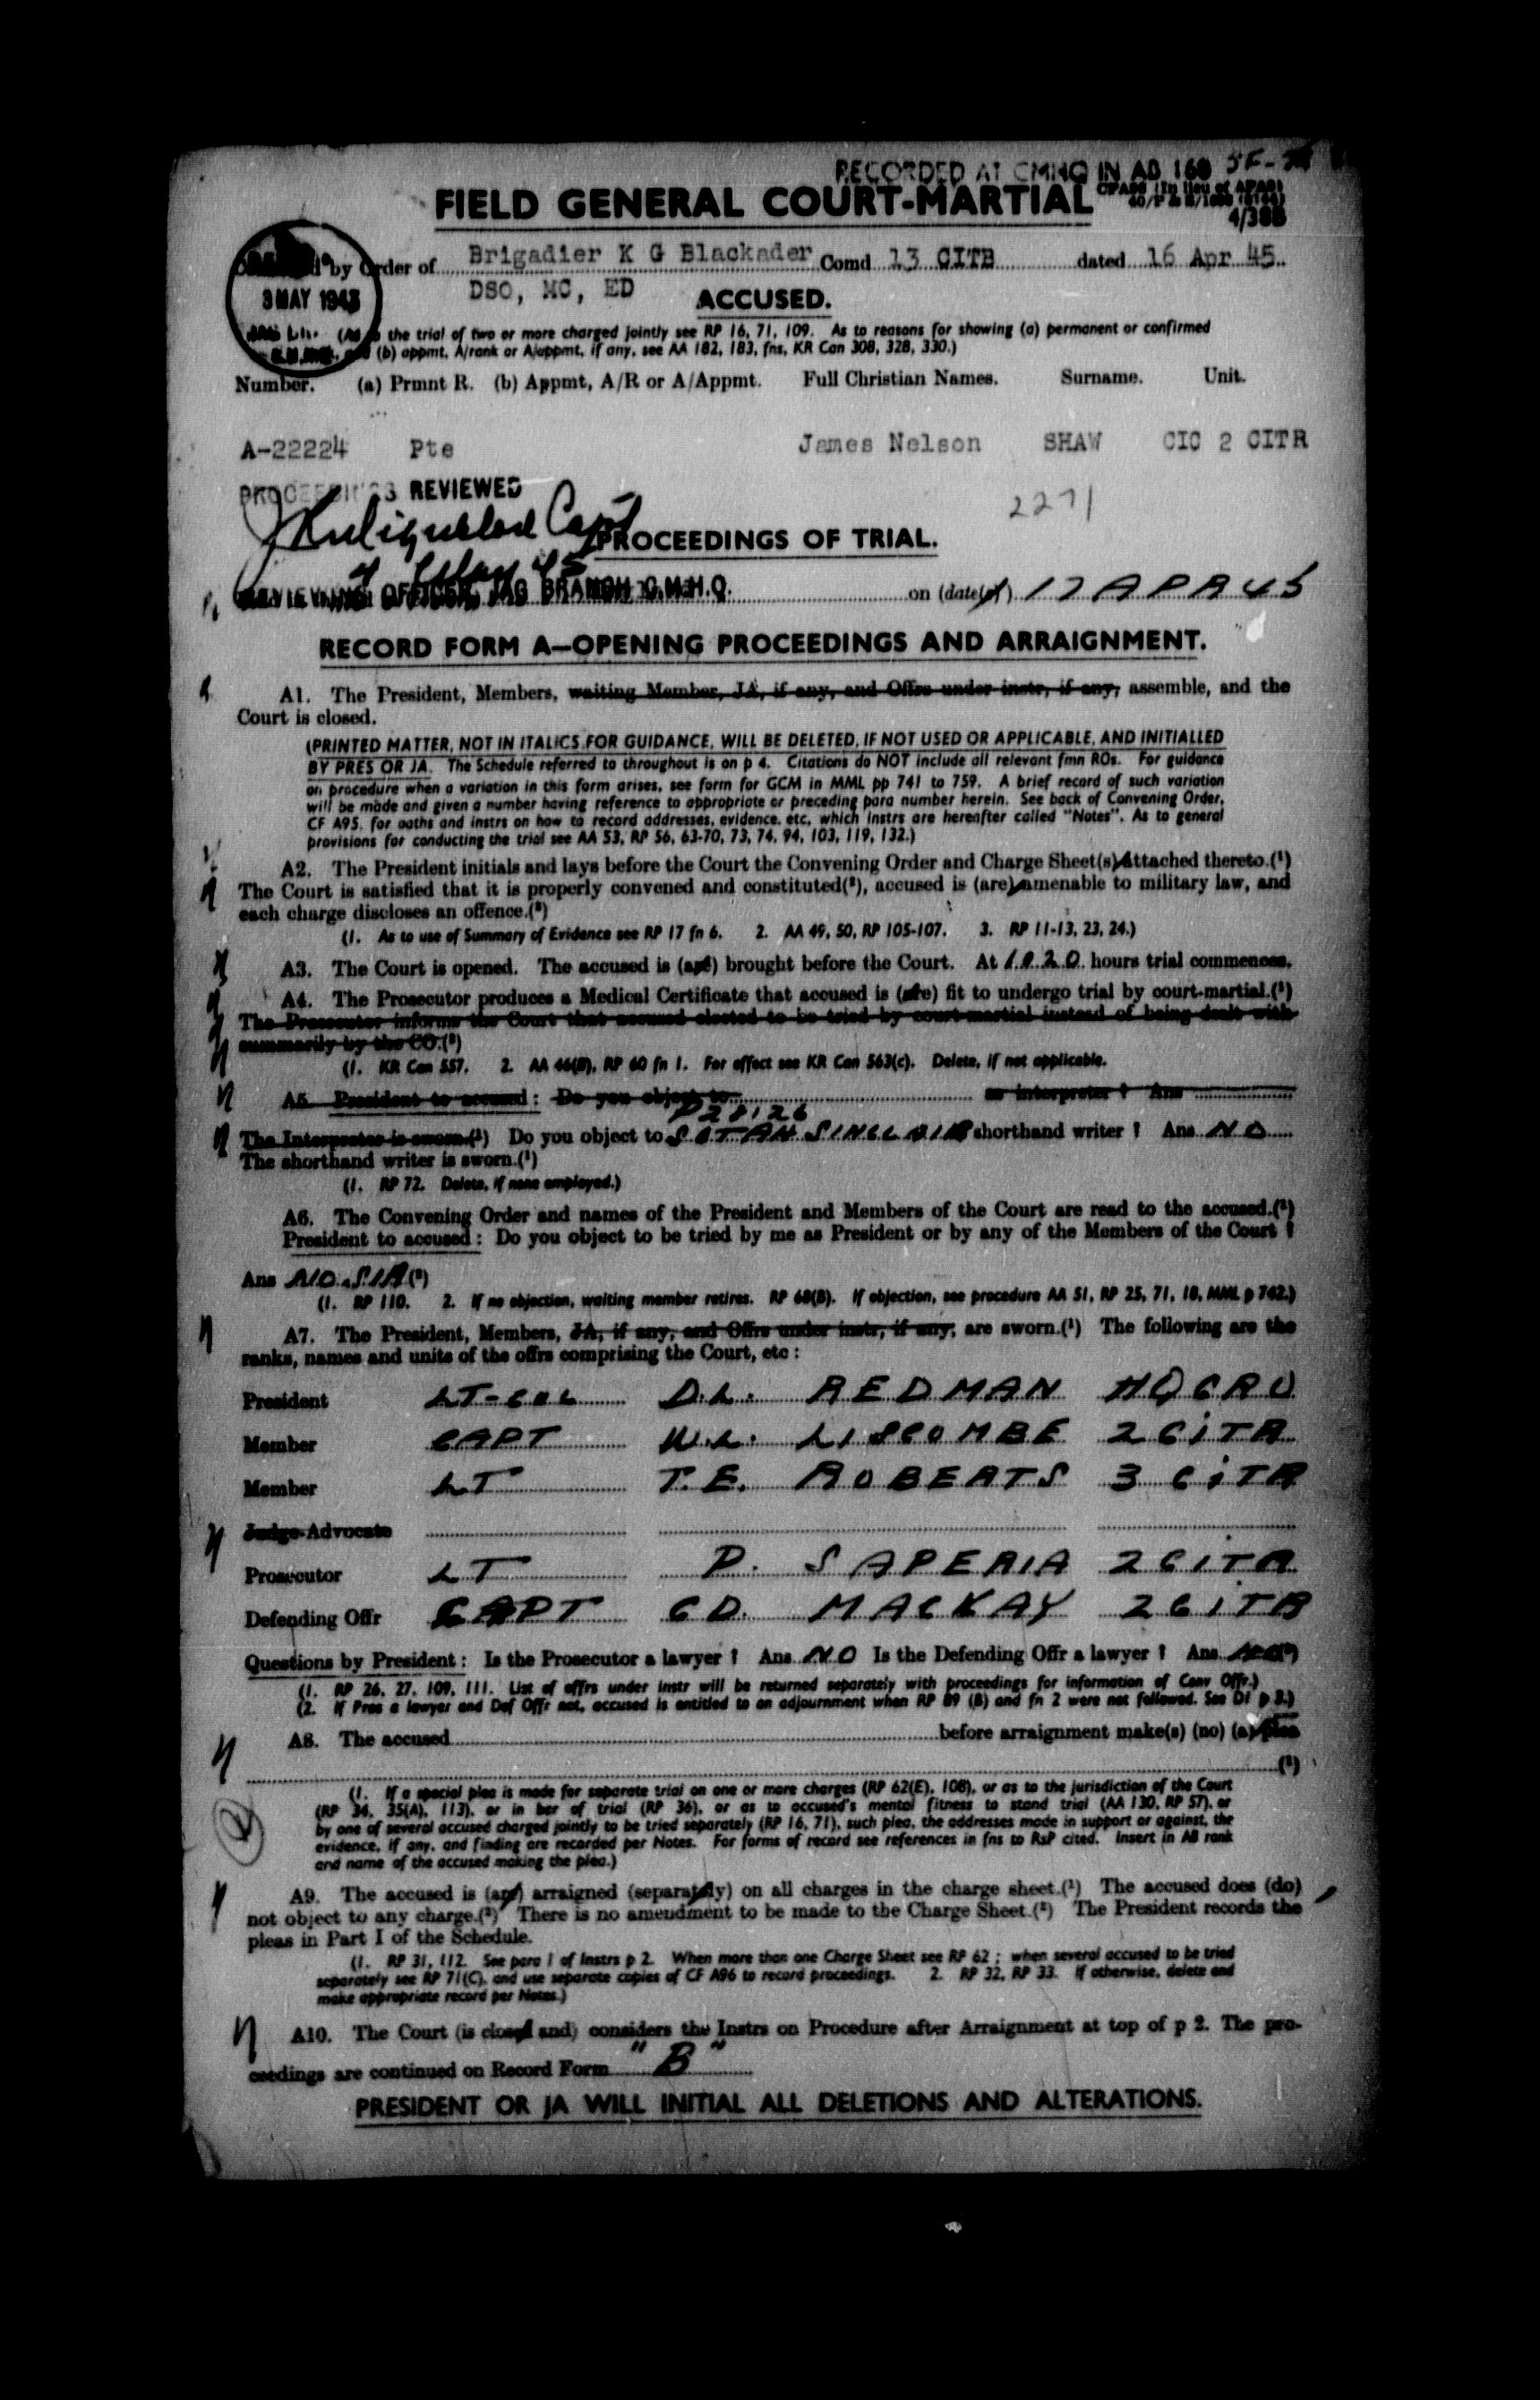 RECORDED AT CMHQ IN AB 160
FIELD GENERAL COURT-MARTIAL
4/388
by Order of Brigadier K G Blackader Comd 13 CITB dated 16 Apr 45
DSO, MC, ED
ACCUSED.
3 MAY 1945
the trial of two or more charged jointly see RP 16, 71, 109. As to reasons for showing (a) permanent or confirmed
(b) appmt, A/rank or A/appmt, if any, see AA 182, 183, fns, KR Can 308, 328, 330.)
Number. (a) Prmnt R. (b) Appmt, A/R or A/Appmt. Full Christian Names. Surname. Unit.
A-22224 Pte James Nelson SHAW CIC 2 CITR
PROCEEDINGS REVIEWED
2271
Capt
PROCEEDINGS OF TRIAL.
May 45
REVIEWING OFFICER, JAG BRANCH C.M.H.Q. on (date(s)) 17 APR 45
RECORD FORM A—OPENING PROCEEDINGS AND ARRAIGNMENT.
A1. The President, Members, waiting Member, JA, if any, and Offrs under instr, if any, assemble, and the
Court is closed.
(PRINTED MATTER, NOT IN ITALICS FOR GUIDANCE, WILL BE DELETED, IF NOT USED OR APPLICABLE, AND INITIALLED
BY PRES OR JA. The Schedule referred to throughout is on p 4. Citations do NOT include all relevant fmn ROs. For guidance
on procedure when a variation in this form arises, see form for GCM in MML pp 741 to 759. A brief record of such variation
will be made and given a number having reference to appropriate or preceding para number herein. See back of Convening Order,
CF A95, for oaths and instrs on how to record addresses, evidence, etc, which instrs are hereafter called "Notes". As to general
provisions for conducting the trial see AA 53, RP 56, 63-70, 73, 74, 94, 103, 119, 132.)
A2. The President initials and lays before the Court the Convening Order and Charge Sheet(s) attached thereto.(1)
The Court is satisfied that it is properly convened and constituted(2), accused is (are) amenable to military law, and
each charge discloses an offence.(3)
(1. As to use of Summary of Evidence see RP 17 fn 6. 2. AA 49, 50, RP 105-107. 3. RP 11-13, 23, 24.)
A3. The Court is opened. The accused is (are) brought before the Court. At 1020 hours trial commences.
A4. The Prosecutor produces a Medical Certificate that accused is (are) fit to undergo trial by court-martial.(1)
The Prosecutor informs the Court that accused elected to be tried by court-martial instead of being dealt with
summarily by the CO.(2)
(1. KR Can 557. 2. AA 46(8), RP 60 fn 1. For effect see KR Can 563(c). Delete, if not applicable.
A5. President to accused: Do you object to as interpreter? Ans
P28126
The Interpreter is sworn.(1) Do you object to SINCLAIR shorthand writer? Ans NO
The shorthand writer is sworn.(1)
(1. RP 72. Delete, if none employed.)
A6. The Convening Order and names of the President and Members of the Court are read to the accused.(1)
President to accused: Do you object to be tried by me as President or by any of the Members of the Court?
Ans NO SIR(2)
(1. RP 110. 2. If no objection, waiting member retires. RP 68(B). If objection, see procedure AA 51, RP 25, 71, 18, MML p 742.)
A7. The President, Members, JA, if any, and Offrs under instr, if any, are sworn.(1) The following are the
ranks, names and units of the offrs comprising the Court, etc:
President LT-COL D.L. REDMAN HQ CRU
Member CAPT W.L. LISCOMBE 2 CITR
Member LT T.E. ROBERTS 3 CITR
Judge-Advocate
Prosecutor LT P. SAPERIA 2 CITR
Defending Offr CAPT CD. MACKAY 2 CITR
Questions by President: Is the Prosecutor a lawyer? Ans NO Is the Defending Offr a lawyer? Ans
(1. RP 26, 27, 109, 111. List of offrs under instr will be returned separately with proceedings for information of Conv Offr.)
(2. If Pros a lawyer and Def Offr not, accused is entitled to an adjournment when RP 89 (B) and fn 2 were not followed. See D1 p 3.)
A8. The accused before arraignment make(s) (no) (a) plea
(1)
(1. If a special plea is made for separate trial on one or more charges (RP 62(E), 108), or as to the jurisdiction of the Court
(RP 34, 35(A), 113), or in bar of trial (RP 36), or as to accused's mental fitness to stand trial (AA 130, RP 57), or
by one of several accused charged jointly to be tried separately (RP 16, 71), such plea, the addresses made in support or against, the
evidence, if any, and finding are recorded per Notes. For forms of record see references in fns to RsP cited. Insert in A8 rank
and name of the accused making the plea.)
A9. The accused is (are) arraigned (separately) on all charges in the charge sheet.(1) The accused does (do)
not object to any charge.(2) There is no amendment to be made to the Charge Sheet.(2) The President records the
pleas in Part I of the Schedule.
(1. RP 31, 112. See para 1 of Instrs p 2. When more than one Charge Sheet see RP 62; when several accused to be tried
separately see RP 71(C), and use separate copies of CF A96 to record proceedings. 2. RP 32, RP 33. If otherwise, delete and
make appropriate record per Notes.)
A10. The Court (is closed and) considers the Instrs on Procedure after Arraignment at top of p 2. The pro-
ceedings are continued on Record Form "B"
PRESIDENT OR JA WILL INITIAL ALL DELETIONS AND ALTERATIONS.